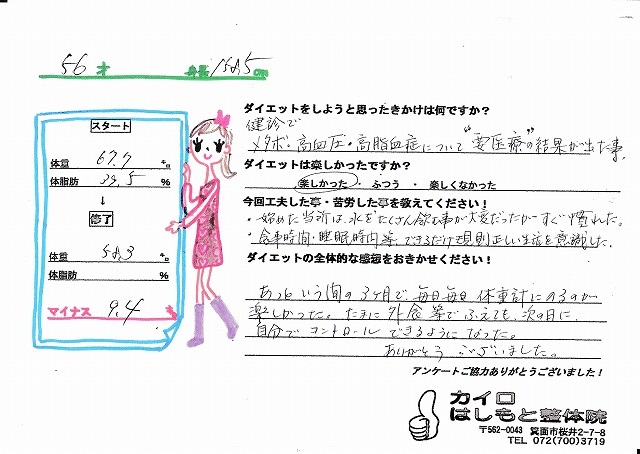 56才 身長 158.5cm
スタート
体重 67.7 kg
体脂肪 39.5 %
終了
体重 58.3 kg
体脂肪 %
マイナス 9.4
ダイエットをしようと思ったきかけは何ですか?
健診で
メタボ・高血圧・高脂血症について"要医療"の結果が出た事。
ダイエットは楽しかったですか?
楽しかった ・ ふつう ・ 楽しくなかった
今回工夫した亊・苦労した亊を教えてください!
・始めた当所は、水をたくさん飲む事が大変だったがすぐ慣れた。
・食事時間・睡眠時間等、できるだけ規則正しい生活を意識した。
ダイエットの全体的な感想をおきかせください!
あっという間の3ヶ月で毎日毎日体重計にのるのが
楽しかった。たまに外食等でふえても、次の日に、
自分でコントロールできるようになった。
ありがとうございました。
アンケートご協力ありがとうございました!
カイロ
はしもと整体院
〒562-0043 箕面市桜井2-7-8
TEL 072(700)3719